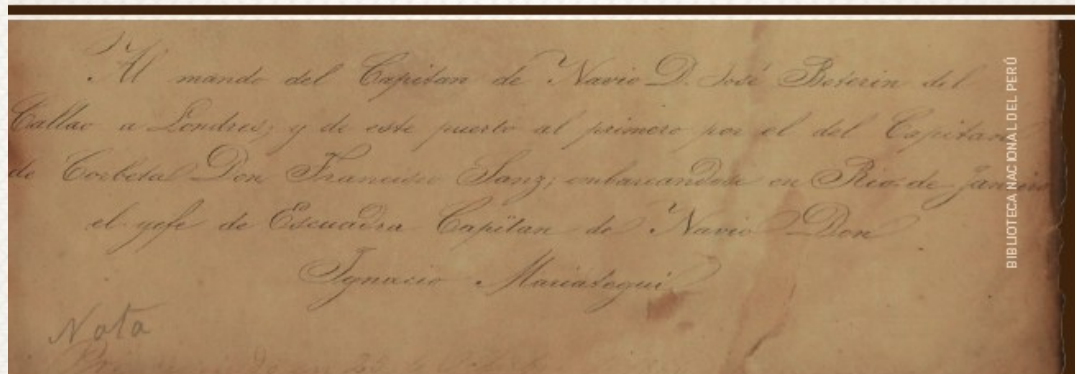 Al mando del Capitan de Navio D. José Beterin del
Callao a Londres; y de este puerto al primero por el del Capitan
de Corbeta Don Francisco Sanz; embarcandose en Rio de Janeiro
el gefe de Escuadra Capitan de Navio Don
Ygnacio Mariategui
Nota
BIBLIOTECA NACIONAL DEL PERÚ